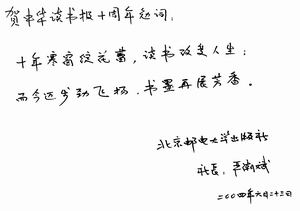 贺中华读书报十周年题词:
十年寒窗绽花蕾,读书改变人生;
而今迈步劲飞扬,书墨再展芳香。
北京邮电大学出版社
社长
二00四年六月二十三日